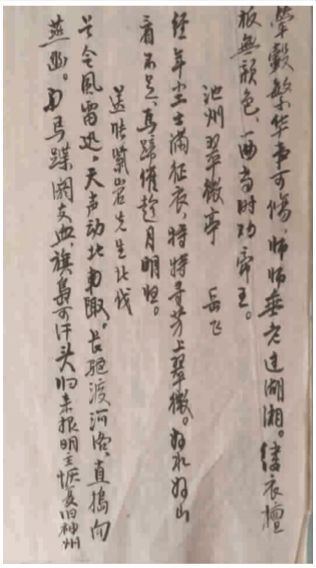 輦毂繁华事可伤,师师垂老过湖湘。缕衣檀
板無颜色,一曲当时动帝王。
池州翠微亭 岳飞
经年尘土满征衣,特特寻芳上翠微。好水好山
看不足,马蹄催趁月明归。
送张紫岩先生北伐
号令风雷迅。天声动北陬。长驱渡河洛,直捣向
燕幽。马蹀阏支血,旗枭可汗头归来报明主恢复旧神州